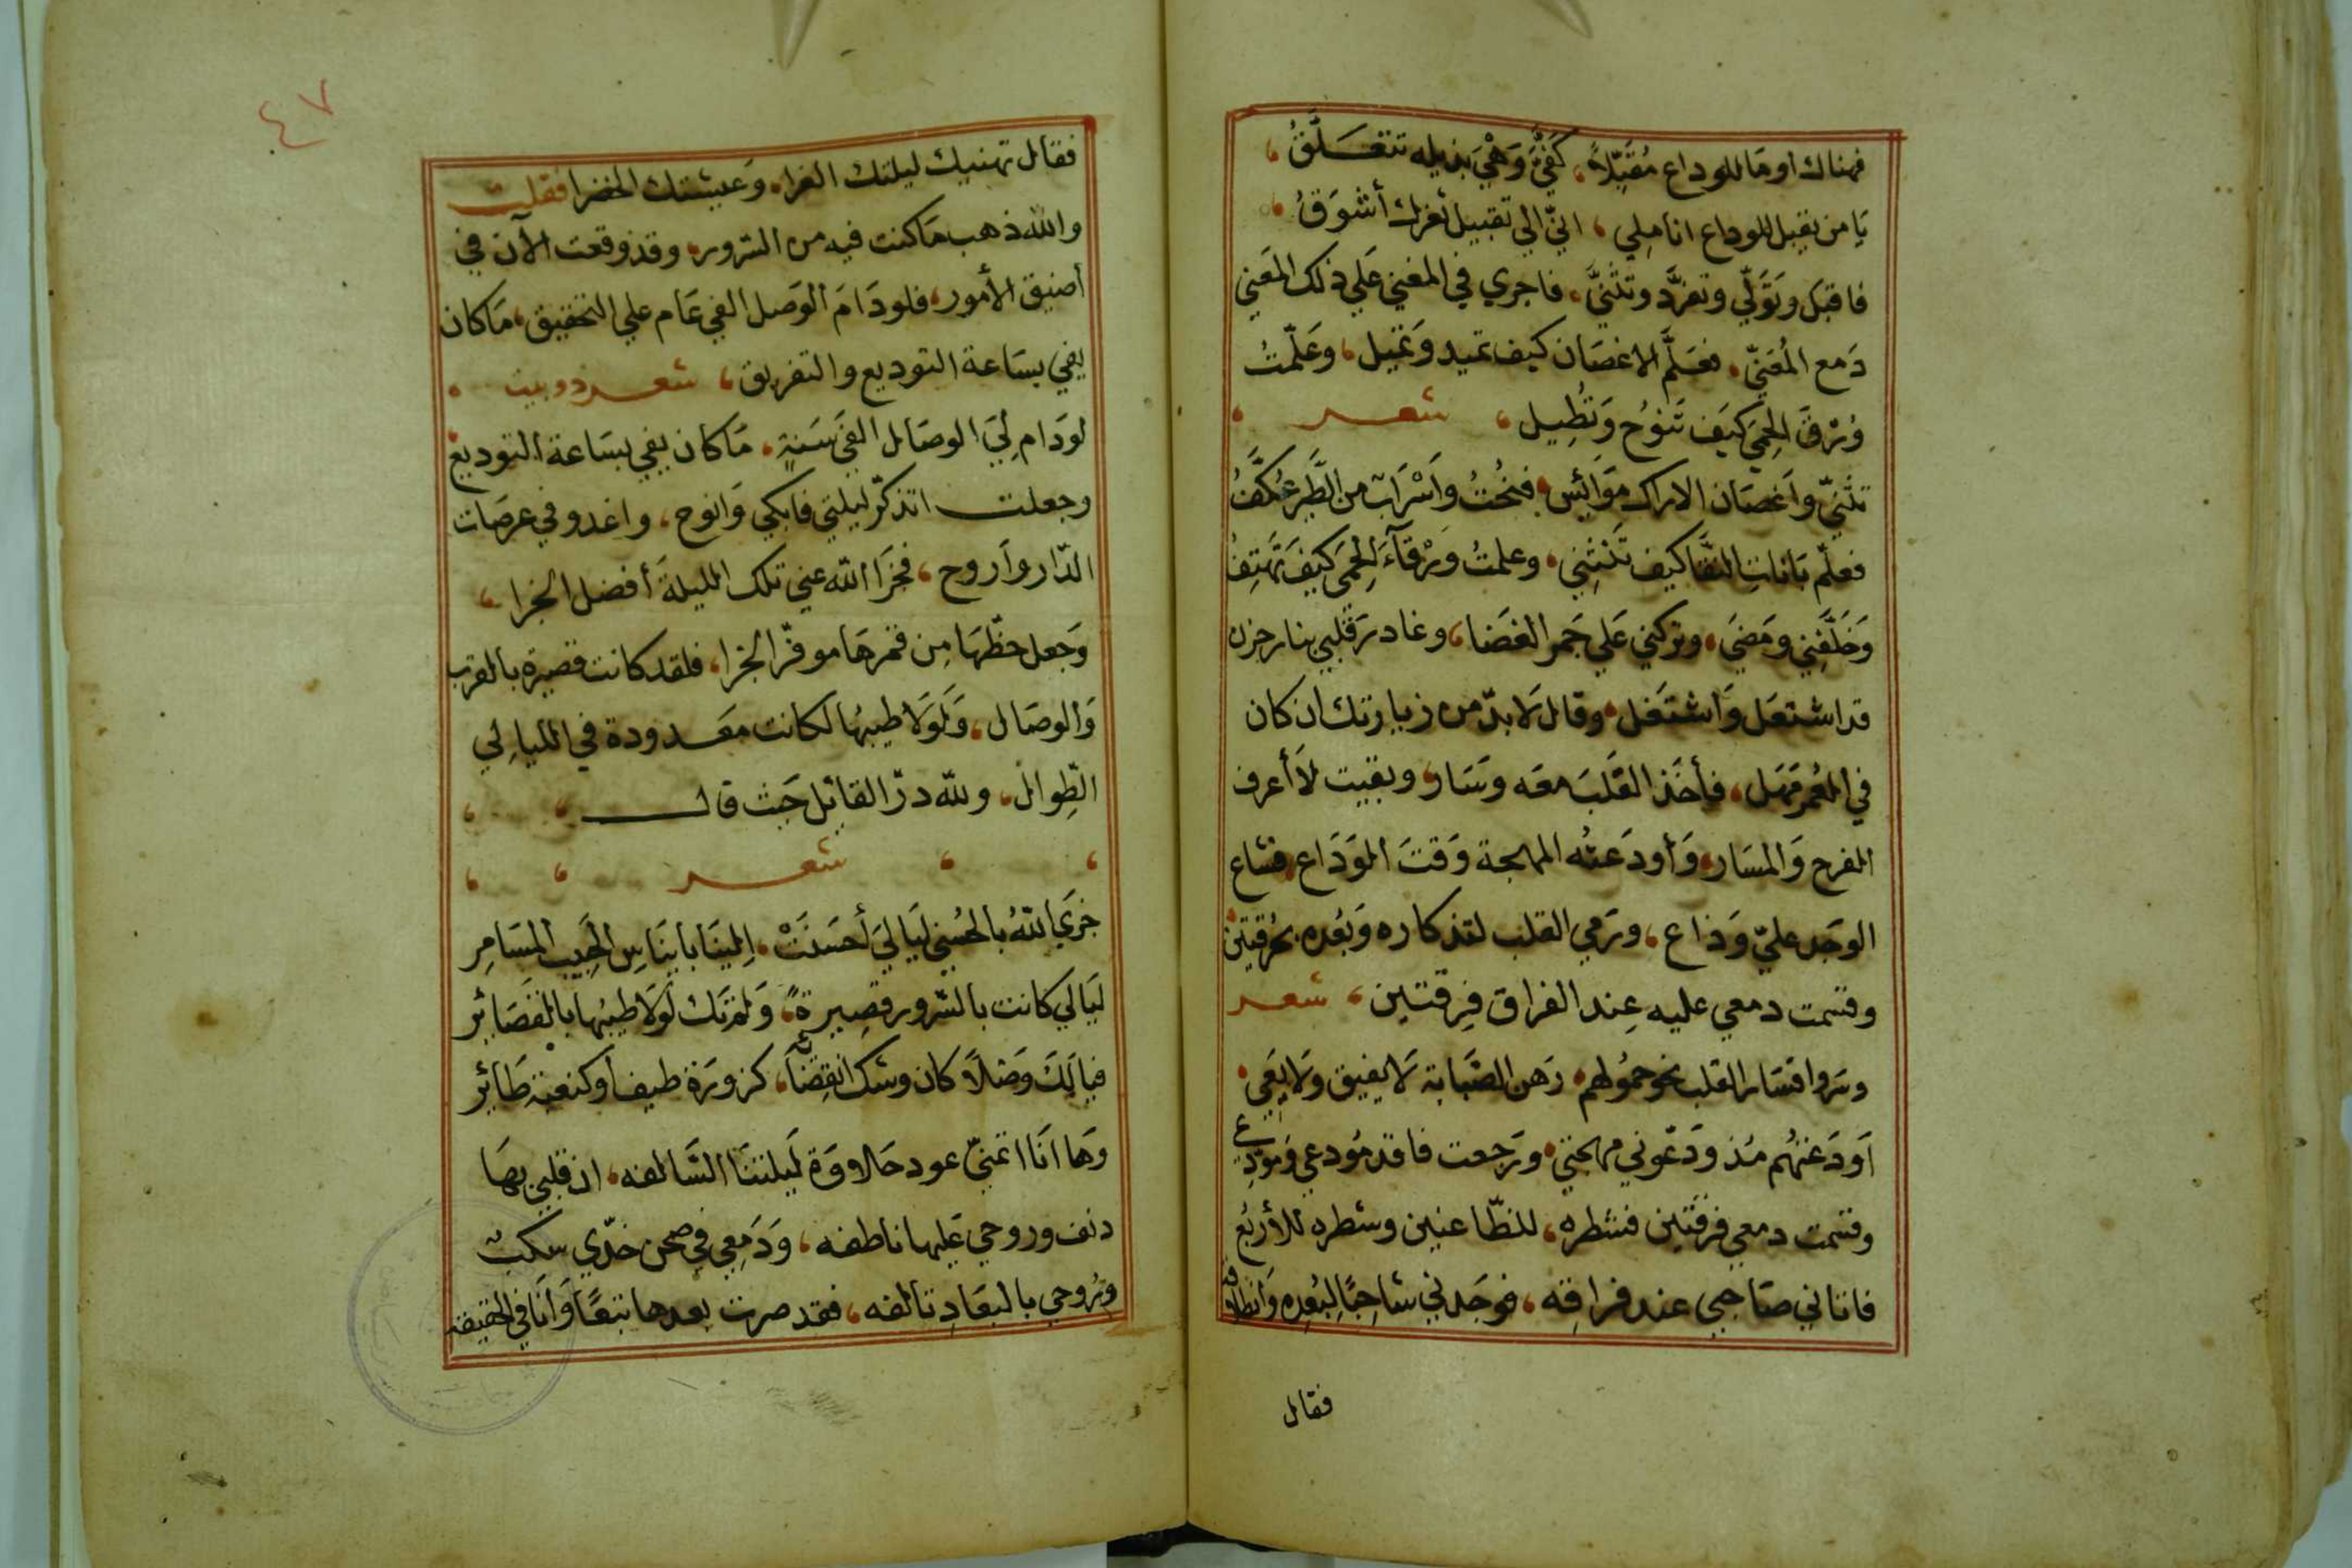 فهناك اومَا للوداع مُقَبِّلاً، كَفيَّ وَهْيَ بذيله تتعَـلَّقُ،
يَا من يقبل للوداع انامِلي، انيّ الي تقبيل ثغرك أشوَقُ،
فاقبَل وتَوَلّي وتفرَّد وتثنيَّ، فاجري في المغني عَلي ذلك المَعَني
دَمع المُعَنيّ، فعَلَّم الاغصَان كيف تميد وَتميل، وعَلّمتُ
وُرْقَ الحِمَي كيَف تَنوُح وَتُطِيل، شعـر
تثنيّ واَغصَان الاراك موَائس، فنحُتُ واَسْرَابٌ من الطَّير عُكَّفُ
فعلّم بَانَاتِ النقَّا كيف تَنْثِني، وعلمتُ وَرْقآءَ الحِمَي كَيفَ تَهتِفُ
وَخلَّفَني ومَضَي، وتركني عَلي جَمر الغضَا، وغادرَ قلبي بنار حزن
قد اشتعَل وَاشتغل، وقال لَا بدّ من زيارتك ان كان
في العُمر مَهَل، فأخَذ القَلبَ معَه وسَار، وبقيت لاَ أعرف
الفرح وَالمسَار، وَأودَعتُه المهجة وَقتَ الوَدَاع، فشاع
الوَجد عليّ وَذاع، ورَمي القلب لتذكاره وَبُعده بحُرقتين
وقسمت دمعي عليه عِند الفراق فِرقتيِن، شعـر
وسَروا فسَار القلب نحو حمُولهم، رَهن الصَّبابة لَا يفيق ولَا يَعي
اَودَعتهُم مُذ ودَّعوني مهجتي، ورَجعت فاقد مُودعي ومُودِع
وقسمت دمعي فرقتين فشطره، للظّاعنين وشطره للأربُع
فاتاني صَاحبي عند فراقِه، فوجَدني شاحِبًا لِبُعدِه وَانطلاقه
فقال
٤٧
فقال تهنيك ليلتك الغرا، وَعيشتك الخضرا فقلـت
والله ذهب مَا كنت فيه من السّرور، وقد وقعت الآن في
أضيق الأمور، فلو دَامَ الوَصل الفي عَام علي التحقيق، مَا كان
يفي بسَاعة التوديع والتفريق، شعـر دوبيت
لو دَام لِيَ الوصَال الفيَ سَنةٍ، مَا كان يفي بسَاعة التوديع
وجعلـت اتذكّر ليلتي فابكي وَانوح، واغدو في عرصَات
الدّار واَروح، فجزَا الله عني تلك الليلةَ أفضل الجزا،
وَجعل حظّهَا مِن قمرهَا موفّر الجزا، فلقد كانت قصيرة بالقرب
وَالوصَال، وَلَوَلَا طيبُها لكانت معَـدودة في الليالِي
الطِّوال، ولله درّ القايل حَيث قالـــ
شعـر
جَزَي اللهُ بالحُسني لَيَاليَ أحسَنَتْ، إِلينَا بايناسِ الحَبِيب المسَامِر
ليَالي كانت بالسّرور قصِيرةً، وَلم تَك لَولَا طيبُها بالقصَايْر
فيا لَكَ وَصْلاً كان وشك انقِضَائه، كزورَة طيف أو كنغبة طَايْر
وَها انَا اتمنيّ عود حَلاوَة لَيلتنَا السَّالفه، اذ قلبي بهَا
دنف وروحي عَليها ناطفه، وَدَمِعي في صحن خدّي سكبت
وَرُوحي بالبعَادِ تالفه، فقد صرت بعدها تبعًا وَانَا في الحقيقه